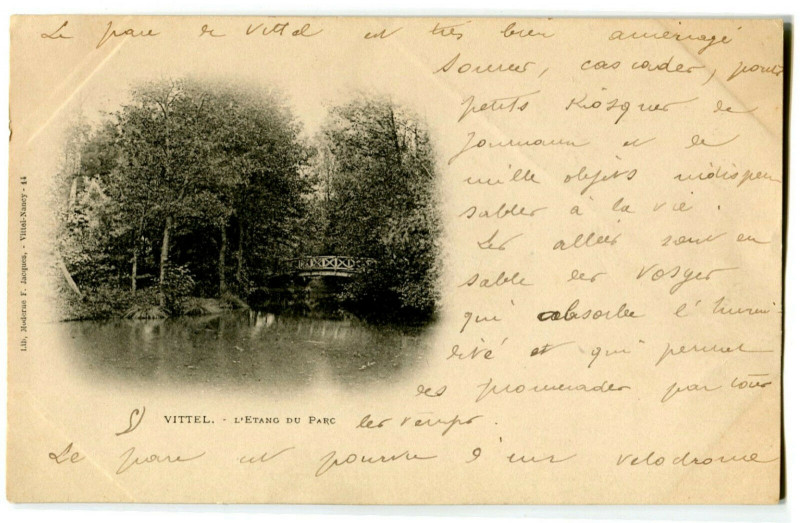 Le parc de Vittel est très bien aménagé
sources, cascades, ponts
petits Kiosques de
journaux et de
mille objets indispen
sables à la vie.
Les allées sont en
sable des Vosges
qui absorbe l'humi-
dité et qui permet
des promenades par tous
les temps.
5) VITTEL. - L'ETANG DU PARC
Le parc est pourvu d'un vélodrome
Lib. Moderne F. Jacques, - Vittel-Nancy - 44